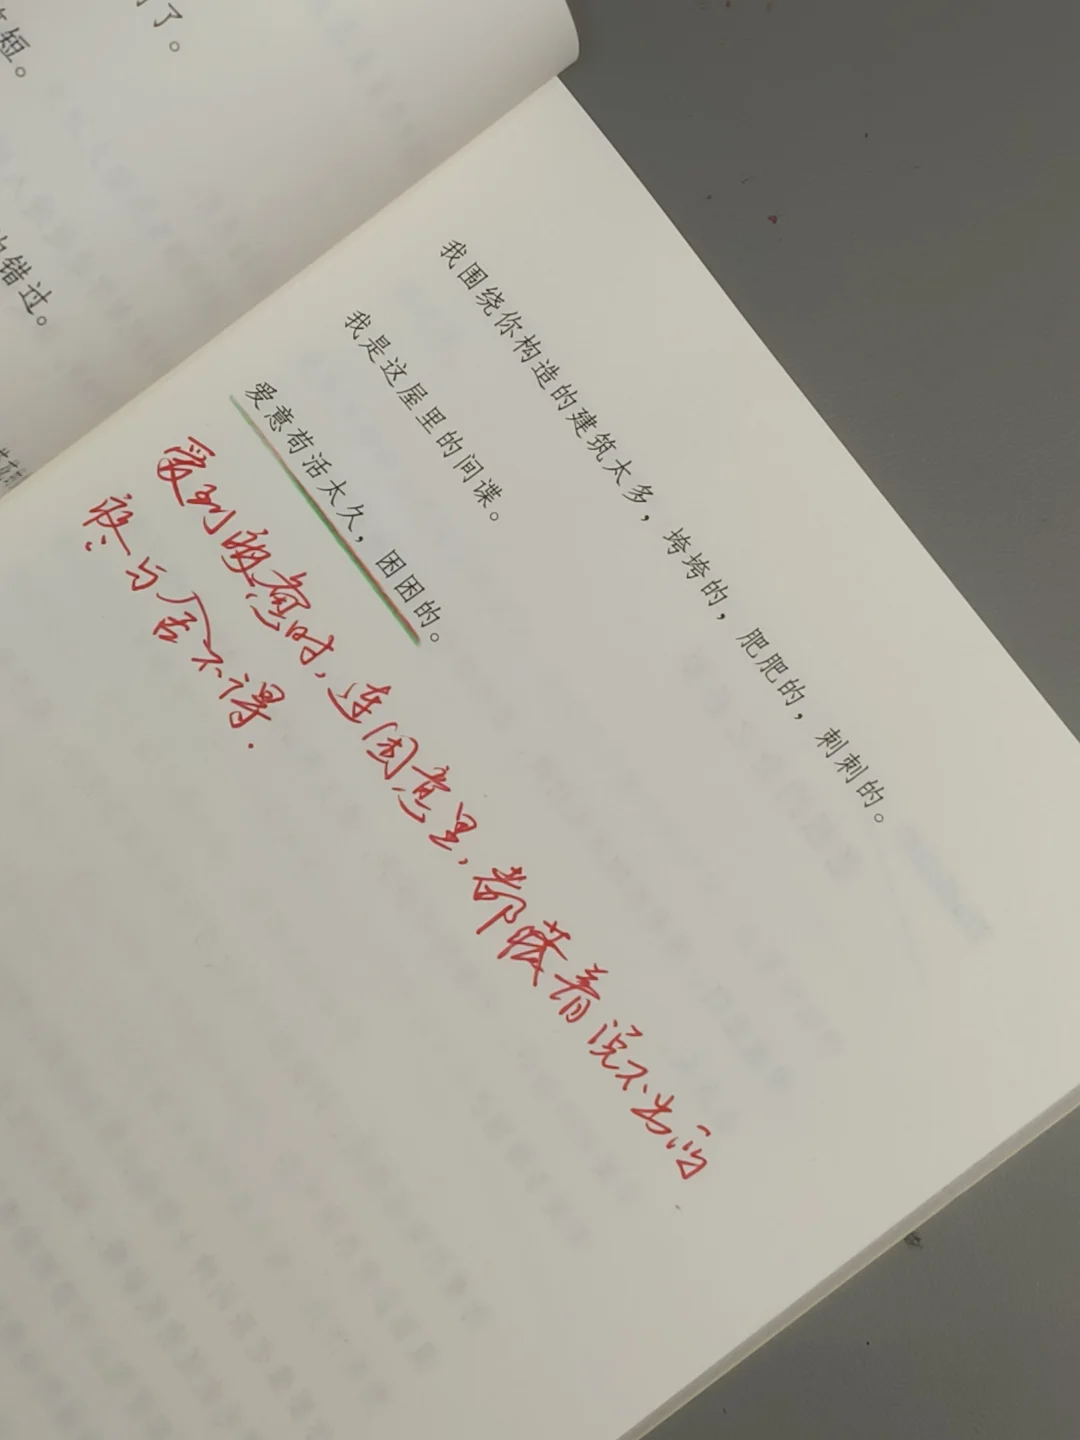 了。
短。
错过。
我围绕你构造的建筑太多，垮垮的，肥肥的，刺刺的。
我是这屋里的间谍。
爱意苟活太久，困困的。
爱到疲惫时，连困意里，都藏着说不出的
疼与舍不得.